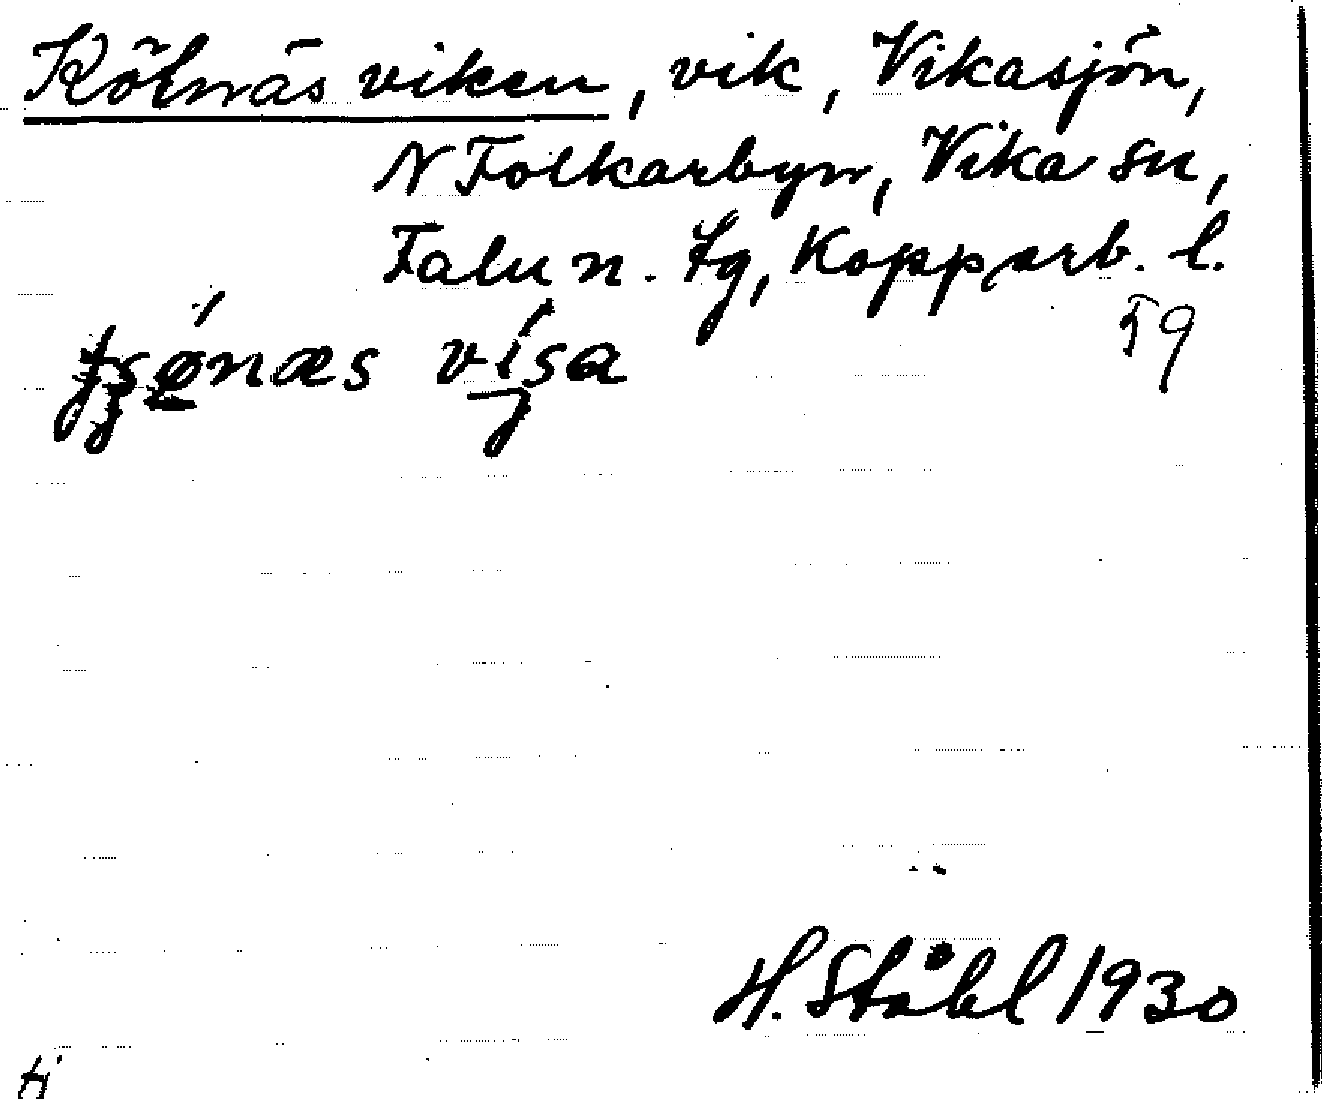 Kölnäsviken, vik, Vikasjön,
N Folkarbyn, Vika sn,
Falu n. tg, Kopparb. l.
59
næs vísa
H. Ståhl 1930